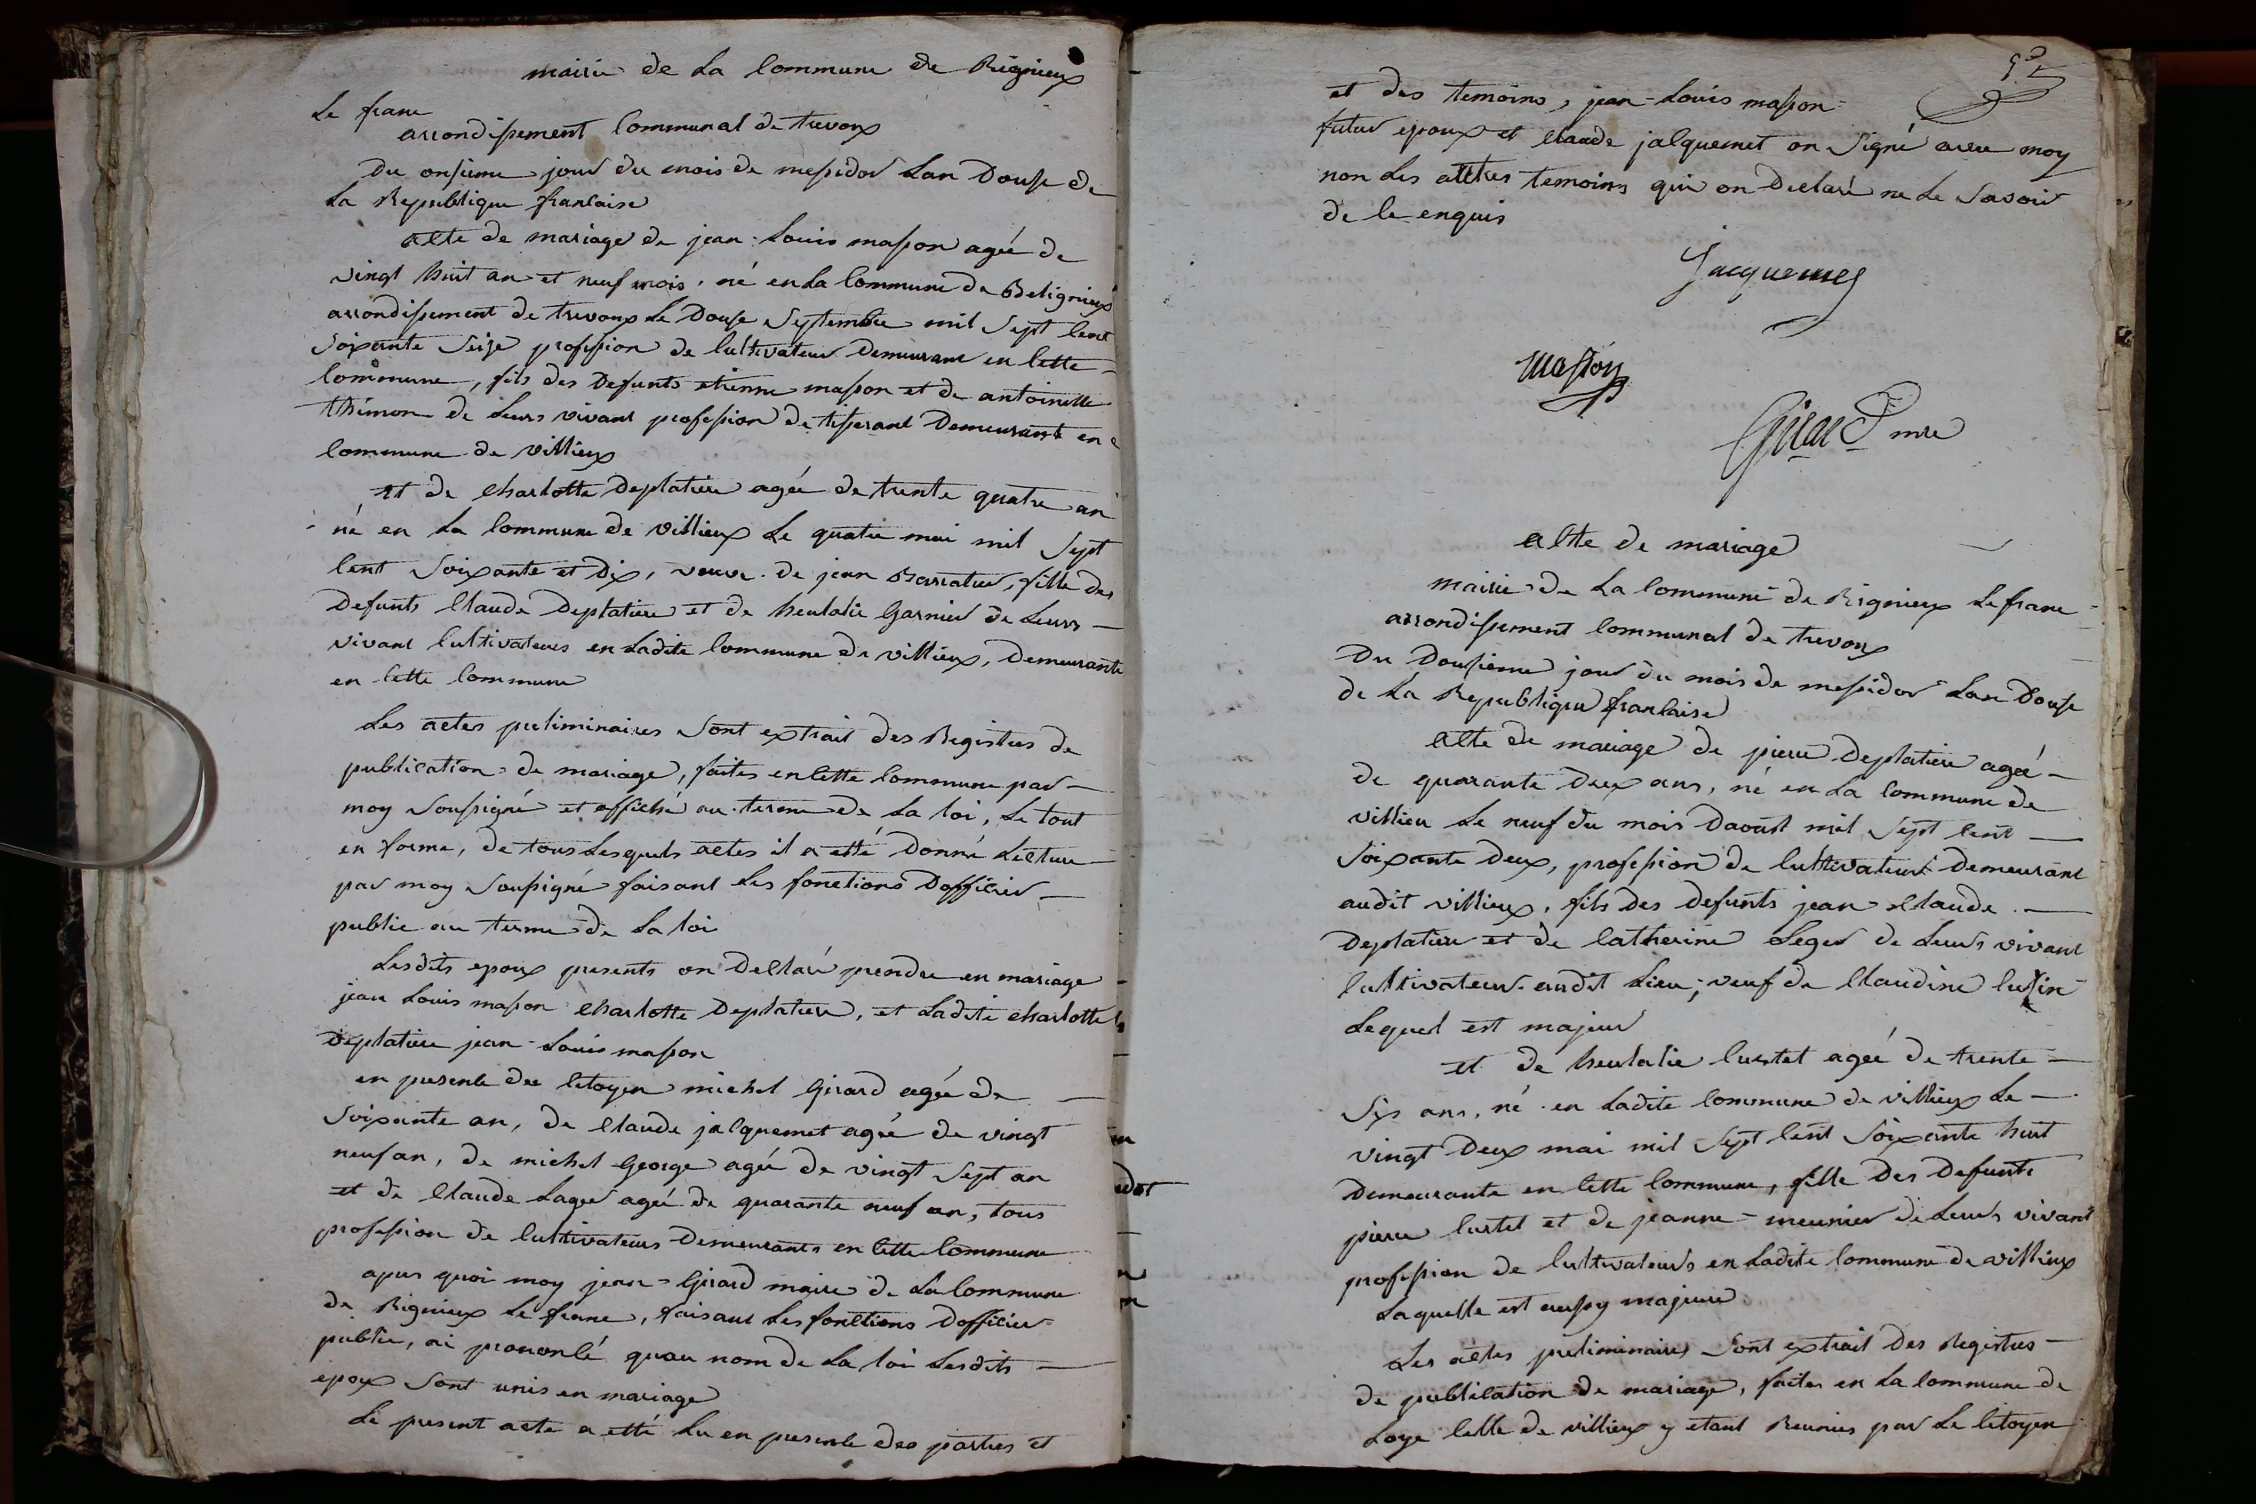 mairie de La Commune de Rignieux
Le franc
arrondissement Communal de trevoux
Du onsieme jour du mois de messidor Lan Douse de
La Republique francaise
acte de mariage de jean-Louis masson agée de
vingt huit an et neuf mois, né en La Commune de Belignieux
arrondissement de trevoux Le Douse Septembre mil Sept Cent
Soixante Seize profession de Cultivateur Demeurant en Cette
Commune, fils des Defunts etienne masson et de antoinette
thémon de Leurs vivant profession de tisserant Demeurant en
Commune de villieux
et de Charlotte Deplatiere agée de trente quatre an
né en La Commune de villieux Le quatre mai mil Sept
Cent Soixante et Dix, veuve de jean Barratier, fille des
Defunts Claude Deplatiere et de heulalie Garnier de Leurs
vivant Cultivateurs en Ladite Commune de villieux, Demeurante
en Cette Commune
Les actes preliminaires Sont extrait des Registres de
publication de mariage, faites en Cette Commune par
moy Soussigné et affiché au terme de La loi, Le tout
en forme, de tous Lesquels actes il a etté Donné Lecture
par moy Soussigné faisant Les fonctions Dofficier
public au terme de La loi
Lesdits epoux presents on Declaré prendre en mariage
jean Louis masson Charlotte Deplatiere, et Ladite Charlotte
Deplatiere jean-Louis masson
en presence du Citoyen michel Girard agée de
Soixante an, de Claude jacquemet agée de vingt
neuf an, de michel George agée de vingt Sept an
et de Claude Lager agée de quarante neuf an, tous
profession de Cultivateurs Demeurants en Cette Commune
apres quoi moy jean-Girard maire de La Commune
de Rignieux Le franc, faisant Les fonctions Dofficier
public, ai prononcé quau nom de La loi Lesdits
epoux Sont unis en mariage
Le present acte a etté Lu en presence des parties et
et des temoins, jean-Louis masson
futur epoux et Claude jacquemet on Signé avec moy
non Les autres temoins qui on Declaré ne Le Savoir
de Ce enquis
Jacquemet
Masson
Girard mre
acte de mariage
mairie de La Commune de Rignieux Le franc
arrondissement Communal de trevoux
Du Dousieme jour du mois de messidor Lan Douse
de La Republique francaise
acte de mariage de pierre Deplatiere agée
de quarante Deux ans, né en La Commune de
villieu Le neuf du mois Daoust mil Sept Cent
Soixante Deux, profession de Cultivateur Demeurant
audit villieux, fils des Defunts jean-Claude
Deplatiere et de Catherine Leger de Leurs vivant
Cultivateurs audit Lieu; veuf de Claudine
Lequel est majeur
et de heulalie Curtet agée de trente
Six ans, né en Ladite Commune de villieux Le
vingt Deux mai mil Sept Cent Soixante huit
Demeurante en Cette Commune, fille Des Defunts
pierre Curtet et de jeanne-meunier de Leurs vivant
profession de Cultivateurs en Ladite Commune de villieux
Laquelle est aussy majeure
Les actes preliminaires Sont extrait Des Registres
de publication de mariage, faites en La Commune de
Loye Celle de villieux y etant Reunies par Le Citoyen